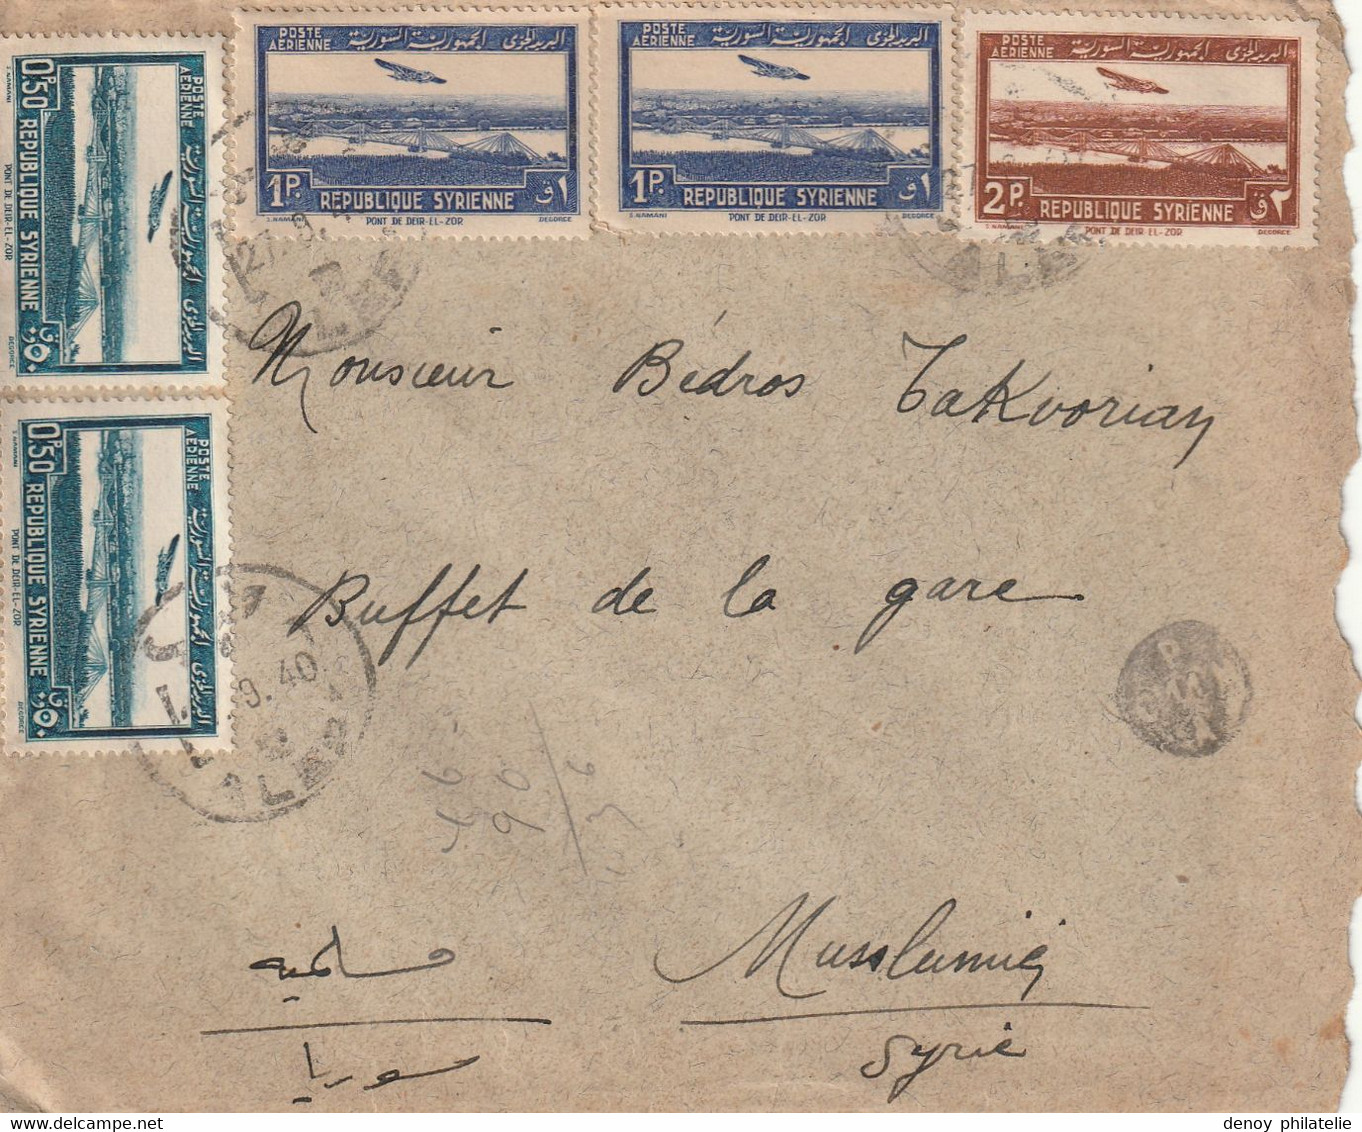 POSTE AERIENNE البريد الجوي الجمهورية السورية
1P. REPUBLIQUE SYRIENNE ١ق
S. NAMANI PONT DE DEIR-EL-ZOR DEGORCE
POSTE AERIENNE البريد الجوي الجمهورية السورية
1P. REPUBLIQUE SYRIENNE ١ق
S. NAMANI PONT DE DEIR-EL-ZOR DEGORCE
POSTE AERIENNE البريد الجوي الجمهورية السورية
2P. REPUBLIQUE SYRIENNE ٢ق
S. NAMANI PONT DE DEIR-EL-ZOR DEGORCE
POSTE AERIENNE البريد الجوي الجمهورية السورية
0P.50 REPUBLIQUE SYRIENNE ٠ق٫٥٠
S. NAMANI PONT DE DEIR-EL-ZOR DEGORCE
POSTE AERIENNE البريد الجوي الجمهورية السورية
0P.50 REPUBLIQUE SYRIENNE ٠ق٫٥٠
S. NAMANI PONT DE DEIR-EL-ZOR DEGORCE
27.9.
9.40
ALEP
Monsieur Bédros Takvorian
Buffet de la gare
Musslumié
Syrie
مسلمية
سوريا
denoy philatelie